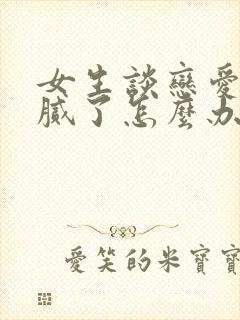 女生談戀愛
膩了怎麼办
愛笑的米寶寶